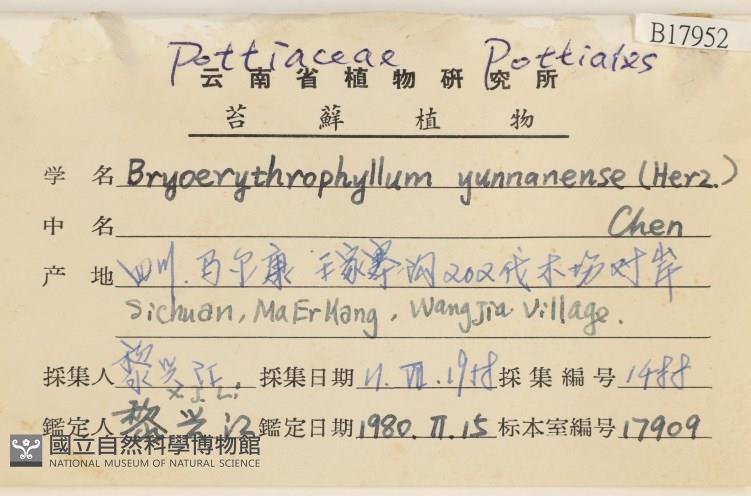 B17952
Pottiaceae Pottiales
云南省植物研究所
苔蘚植物
学名 Bryoerythrophyllum yunnanense (Herz.)
中名 Chen
产地 四川.马尔康 王家寨沟202伐木场对岸
Sichuan, MaErKang, WangJia Village.
採集人 黎兴江 採集日期 VII.19 採集編号
X. J. Li
鑑定人 黎兴江 鑑定日期 1980.II.15 标本室編号 17909
國立自然科學博物館
NATIONAL MUSEUM OF NATURAL SCIENCE